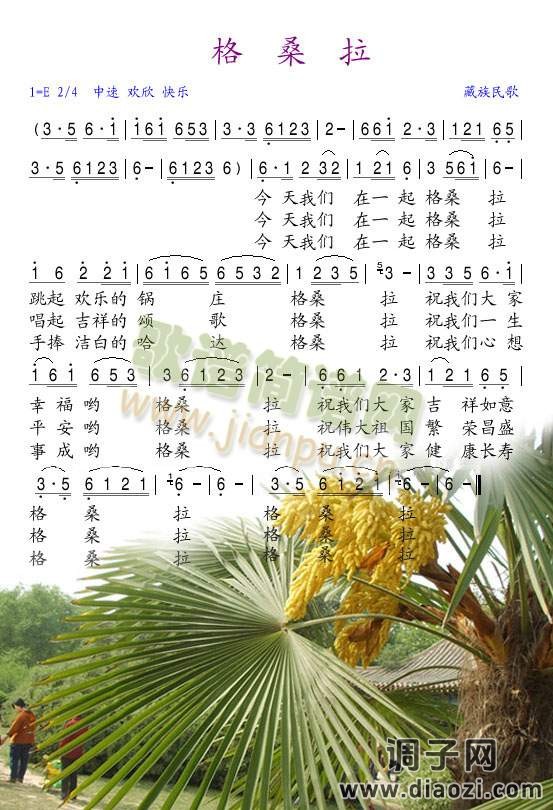 格 桑 拉
1=E 2/4 中速 欢欣 快乐 藏族民歌
(3·5 6·1|1 6 1 6 5 3|3·3 6 1 2 3|2-|6 6 1 2·3|1 2 1 6 5|
3·5 6 1 2 3|6-|1 6 1 6 5 3|6 1 2 3 6)|6·1 2 3 2|1 2 1 6|3 5 6 1|6-|
今 天我们 在一 起 格桑 拉
今 天我们 在一 起 格桑 拉
今 天我们 在一 起 格桑 拉
1 6 2 2 1|6 1 6 5|6 5 3 2|1 2 3 5|5 3-|3 3 5 6·1|
跳起 欢乐的 锅 庄 格桑 拉 祝我们大 家
唱起 吉祥的 颂 歌 格桑 拉 祝我们一 生
手捧 洁白的 哈 达 格桑 拉 祝我们心 想
1 6 1 6 5 3|3 6 1 2 3|2-|6 6 1 2·3|1 2 1 6 5|
幸 福 哟 格桑 拉 祝我们大 家 吉 祥如意
平 安 哟 格桑 拉 祝伟大祖 国 繁 荣昌盛
事 成 哟 格桑 拉 祝我们大 家 健 康长寿
3·5 6 1 2 1|6-|6-|3·5 6 1 2 1|6-|6-‖
格 桑 拉 格 桑 拉
格 桑 拉 格 桑 拉
格 桑 拉 格 桑 拉
歌谱简谱网
www.jianpu.cn
调子网
www.diaozi.com